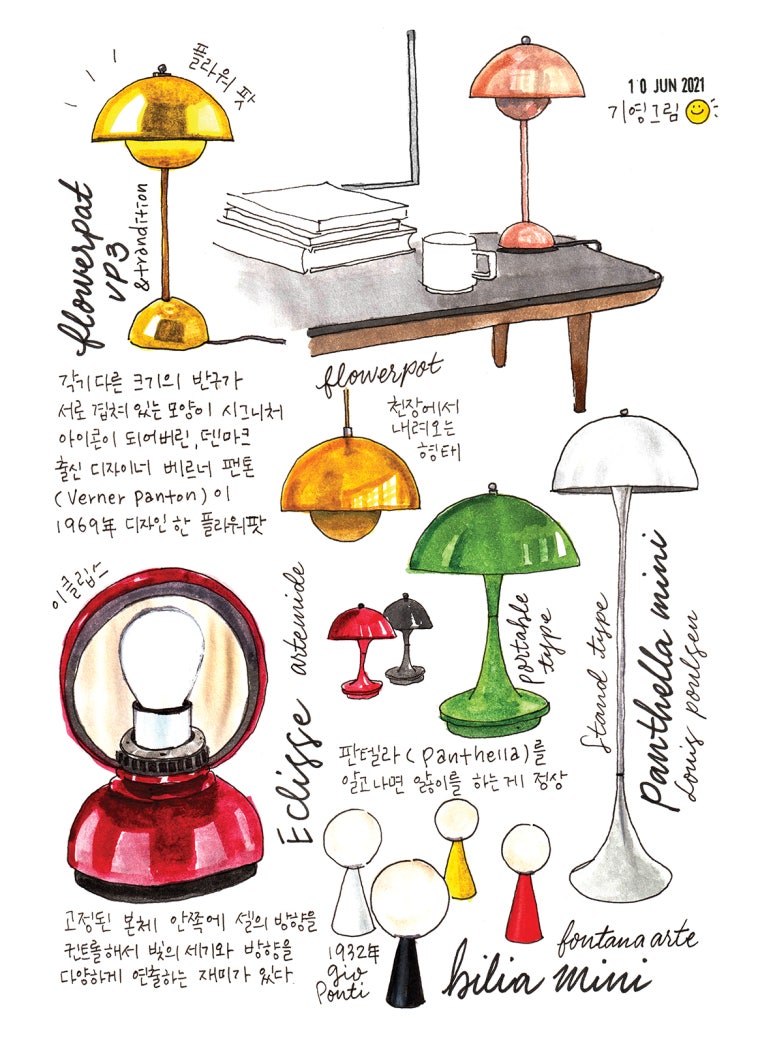 플라워 팟
10 JUN 2021
기영그림
flowerpat
vp3
&trandition
각기다른 크기의 반구가
서로 겹쳐있는 모양이 시그니처
아이콘이 되어버린, 덴마크
출신 디자이너 베르너 팬톤
(Verner panton)이
1969年 디자인한 플라워팟
flowerpot
천장에서
내려오는
형태
이클립스
Eclisse artemide
portable
type
Stand type
panthella mini
Louis poulsen
판텔라(panthella)를
알고나면 앓이를 하는게 정상
고정된 본체 안쪽에 셸의 방향을
컨트롤해서 빛의 세기와 방향을
다양하게 연출하는 재미가 있다.
1932年
gio
Ponti
fontana arte
bilia mini